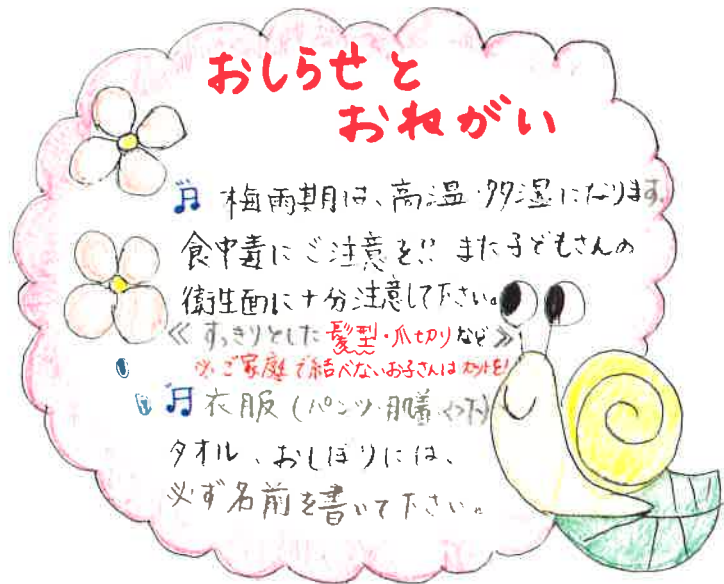 おしらせと
おねがい
梅雨期は、高温・多湿になります。
食中毒にご注意を!! また子どもさんの
衛生面に十分注意して下さい。
≪ すっきりとした髪型・爪切りなど ≫
※ご家庭で結べないお子さんはカットを!
衣服(パンツ・肌着・くつ下)
タオル、おしぼりには、
必ず名前を書いて下さい。